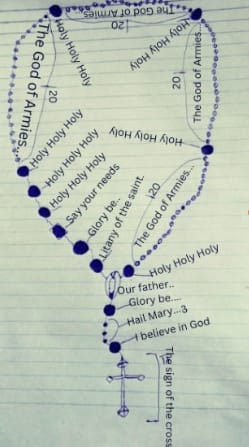 The God of Armies
20
Holy Holy Holy
Holy Holy Holy
The God of Armies..
20
The God of Armies..
20
Holy Holy Holy
Holy Holy Holy
Holy Holy Holy
Holy Holy Holy
Say your needs
Glory be..
Litany of the saint.
The God of Armies..
20
Holy Holy Holy
Our father..
Glory be....
Hail Mary...3
I believe in God
The sign of the cross